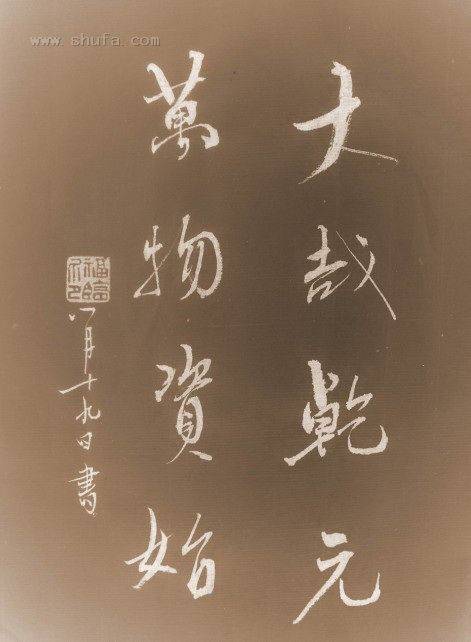 大哉乾元
萬物資始
八月十九日書
www.shufa.com